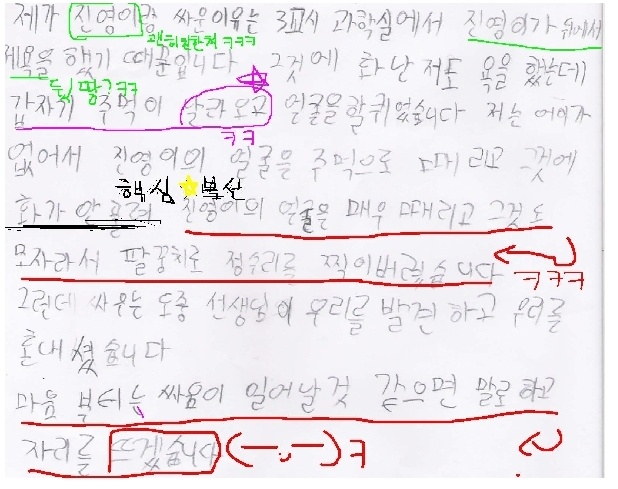 제가 진영이랑 싸운 이유는 3교시 과학실에서 진영이가 뒤에서
ㅋㅋㅋ
제 욕을 했기 때문입니다 그것에 화난 저도 욕을 했는데
뒷땅?ㅋㅋ
갑자기 주먹이 날라오고 얼굴을 할퀴었습니다 저는 어이가
ㅋㅋ
없어서 진영이의 얼굴을 주먹으로 때리고 그것에
핵심 ★ 부산
화가 안 풀려 진영이의 얼굴을 매우 때리고 그것도
모자라서 팔꿈치로 정수리를 찍어버렸습니다
ㅋㅋㅋ
그런데 싸우는 도중 선생님이 우리를 발견하고 우리를
혼내셨습니다
다음 부터는 싸움이 일어날것 같으면 말로 하고
자리를 뜨겠습니다 (ㅡ.ㅡ)ㅋ